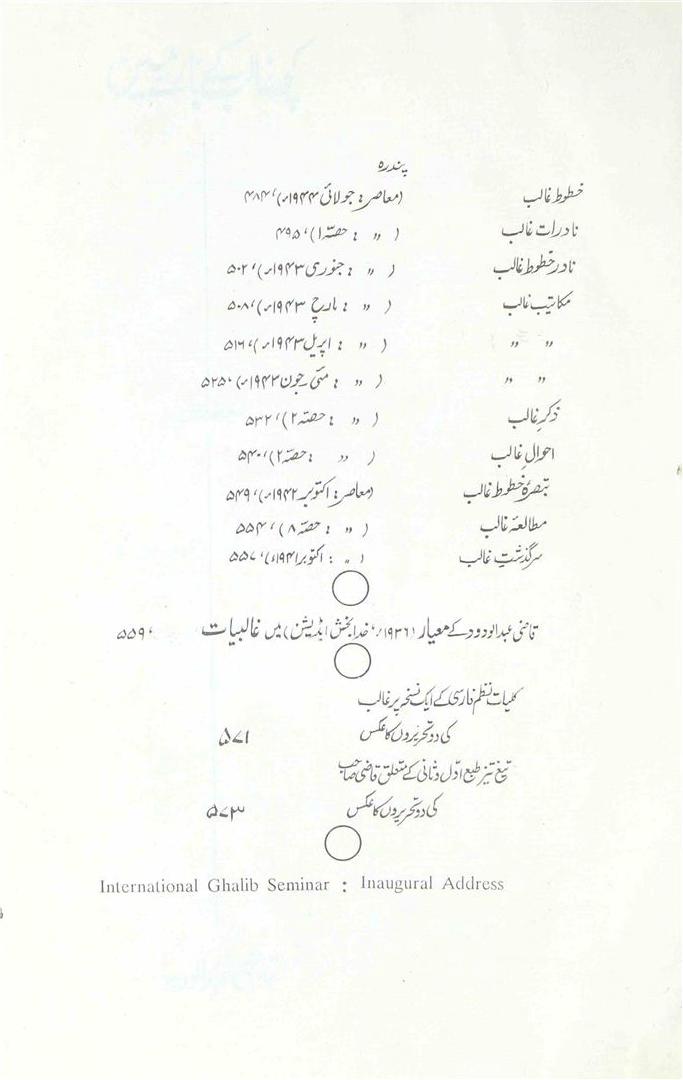 پندرہ
خطوط غالب (معاصر: جولائی ۱۹۴۴ء)، ۴۸۴
نادرات غالب ( ״ : حصہ ۱)، ۴۹۵
نادر خطوط غالب ( ״ : جنوری ۱۹۴۳ء)، ۵۰۲
مکاتیب غالب ( ״ : مارچ ۱۹۴۳ء)، ۵۰۸
״ ״ ( ״ : اپریل ۱۹۴۳ء)، ۵۱۶
״ ״ ( ״ : مئی ـ جون ۱۹۴۲ء)، ۵۲۵
ذکرِ غالب ( ״ : حصہ ۲)، ۵۳۲
احوالِ غالب ( ״ : حصہ ۲)، ۵۴۰
تبصرۂ خطوط غالب (معاصر: اکتوبر ۱۹۴۲ء)، ۵۴۹
مطالعۂ غالب ( ״ : حصہ ۸)، ۵۵۴
سرگذشتِ غالب ( ״ : اکتوبر ۱۹۴۱ء)، ۵۵۷
قاضی عبدالودود کے معیار (۱۹۳۶ء، خدا بخش اڈیشن) میں غالبیات ، ۵۵۹
کلیات نظم فارسی کے ایک نسخہ پر غالب
کی دو تحریروں کا عکس ۵۷۱
تیغ تیز طبع اوّل و ثانی کے متعلق قاضی صاحب
کی دو تحریروں کا عکس ۵۷۳
International Ghalib Seminar : Inaugural Address